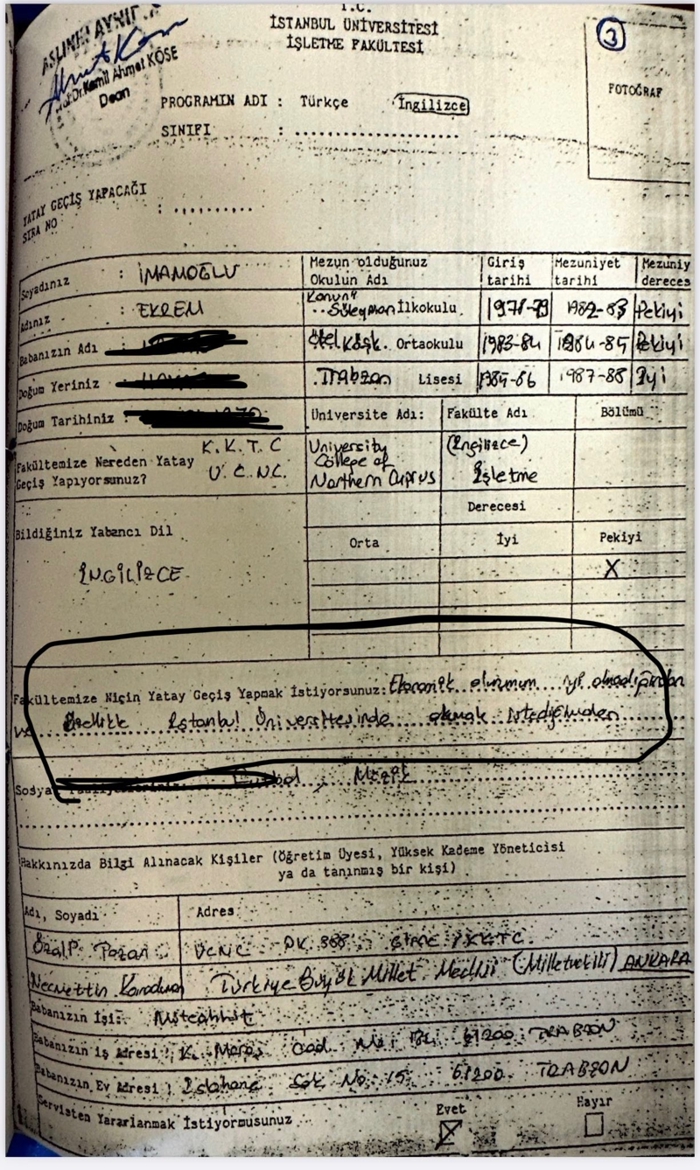 ASLININ AYNIDIR
Prof.Dr.Kamil Ahmet KÖSE
Dean
T.C.
İSTANBUL ÜNİVERSİTESİ
İŞLETME FAKÜLTESİ
3
FOTOĞRAF
PROGRAMIN ADI : Türkçe İngilizce
SINIFI :
YATAY GEÇİŞ YAPACAĞI
SIRA NO :
Soyadınız : İMAMOĞLU
Mezun olduğunuz Okulun Adı Giriş tarihi Mezuniyet tarihi Mezuniy dereces
Adınız : EKREM
Kanuni Süleyman İlkokulu 1978-79 1982-83 Pekiyi
Babanızın Adı :
Ortaokulu 1983-84 1984-85 Pekiyi
Doğum Yeriniz :
Trabzon Lisesi 1985-86 1987-88 İyi
Doğum Tarihiniz :
Üniversite Adı: Fakülte Adı Bölümü
Fakültemize Nereden Yatay Geçiş Yapıyorsunuz? K.K.T.C U.C.N.C.
University College of Northern Cyprus (İngilizce) İşletme
Bildiğiniz Yabancı Dil
Derecesi
Orta İyi Pekiyi
İNGİLİZCE X
Fakültemize Niçin Yatay Geçiş Yapmak İstiyorsunuz: Ekonomik durumum iyi olmadığından
ve özellikle İstanbul Üniversitesinde okumak istediğimden
Sosyal Futbol, Müzik
Hakkınızda Bilgi Alınacak Kişiler (Öğretim Üyesi, Yüksek Kademe Yöneticisi
ya da tanınmış bir kişi)
Adı, Soyadı Adres
UCNC PK 388 Girne / KKTC.
Necmettin Karaduman Türkiye Büyük Millet Meclisi (Milletvekili) ANKARA
Babanızın İşi: Müteahhit
Babanızın İş Adresi: K. Maraş Cad. 61200 TRABZON
Babanızın Ev Adresi: Sok No: 15 61200 TRABZON
Servisten Yararlanmak İstiyormusunuz Evet Hayır